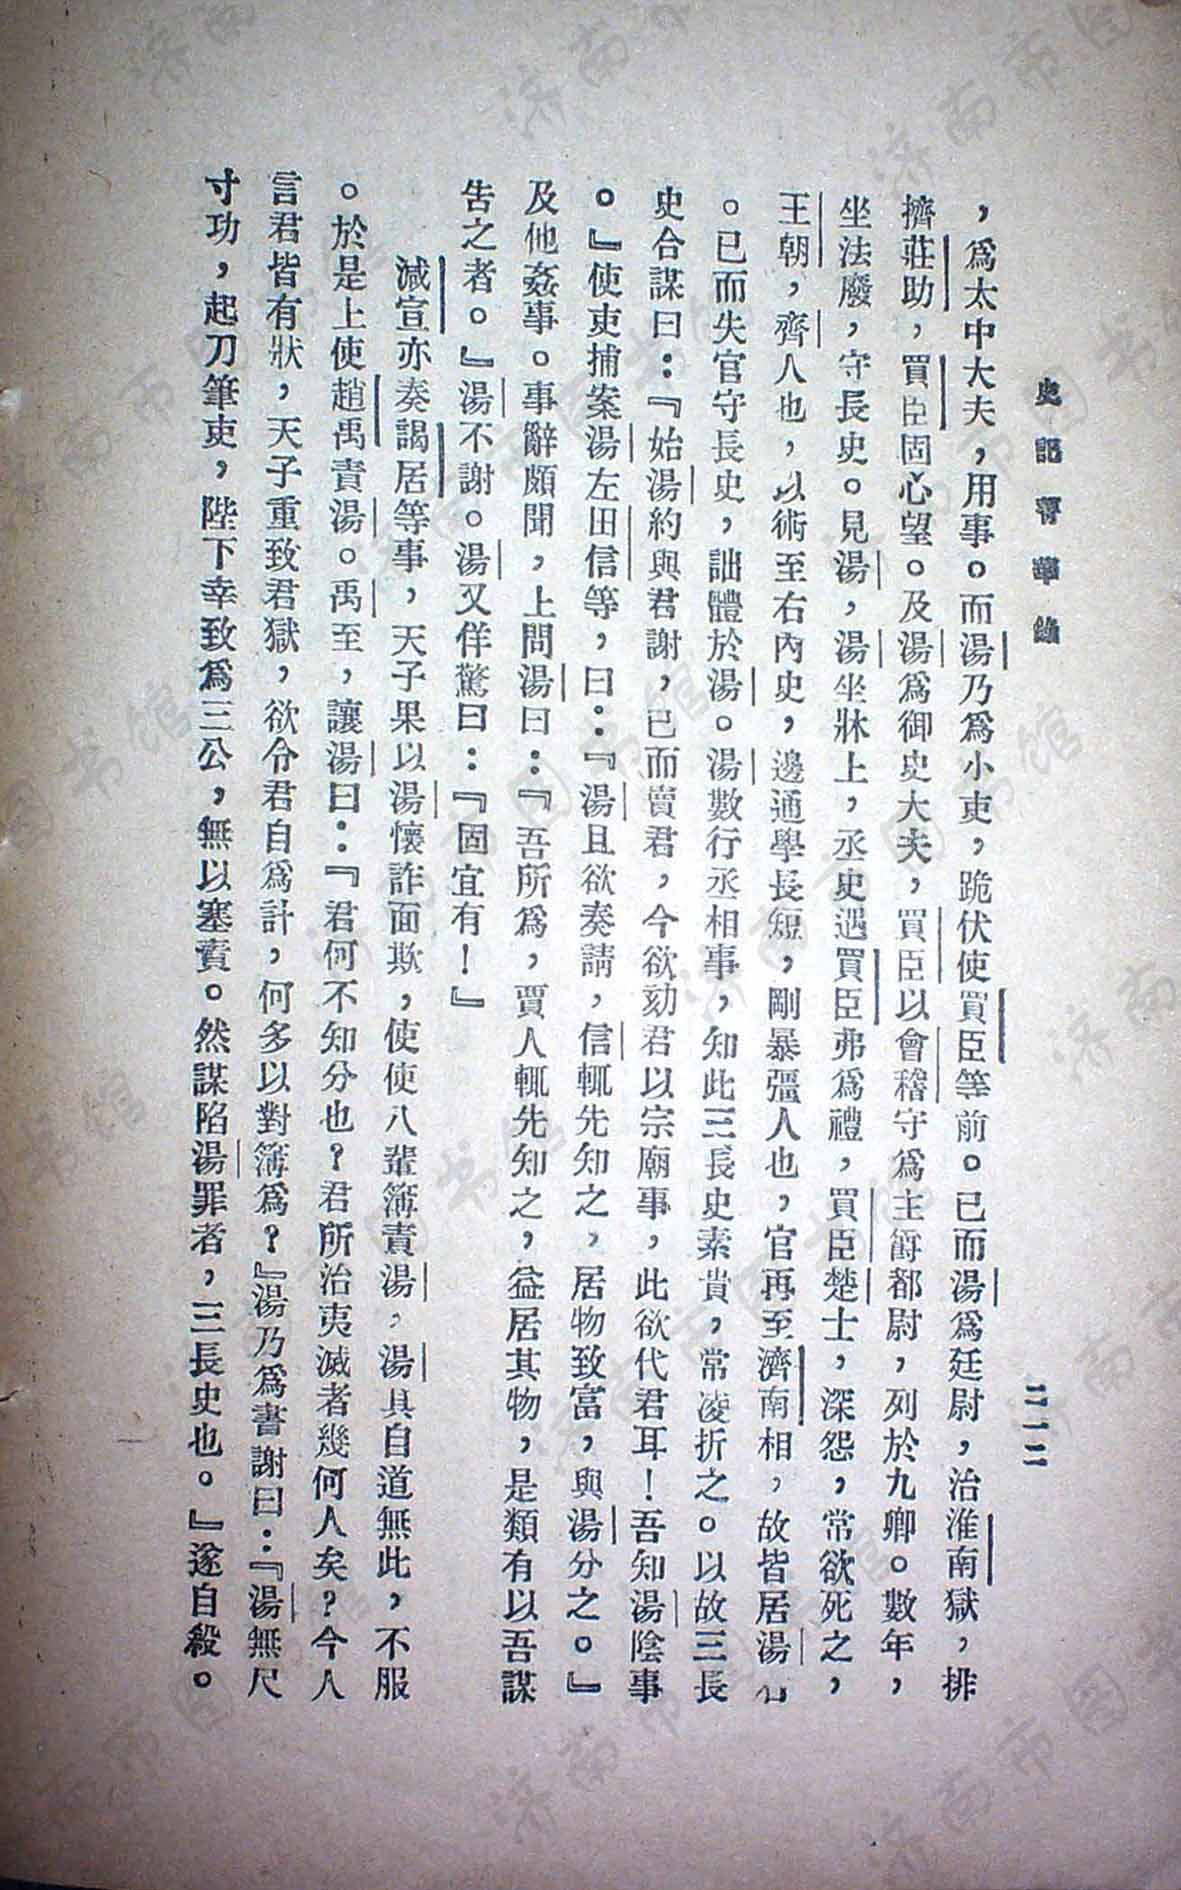 史記菁華錄
二一二
，爲太中大夫，用事。而湯乃爲小吏，跪伏使買臣等前。已而湯爲廷尉，治淮南獄，排
擠莊助，買臣固心望。及湯爲御史大夫，買臣以會稽守爲主爵都尉，列於九卿。數年，
坐法廢，守長史。見湯，湯坐牀上，丞史遇買臣弗爲禮，買臣楚士，深怨，常欲死之，
王朝，齊人也，以術至右內史，邊通學長短，剛暴彊人也，官再至濟南相，故皆居湯右
。已而失官守長史，詘體於湯。湯數行丞相事，知此三長史素貴，常凌折之。以故三長
史合謀曰：『始湯約與君謝，已而賣君，今欲劾君以宗廟事，此欲代君耳！吾知湯陰事
。』使吏捕案湯左田信等，曰：『湯且欲奏請，信輒先知之，居物致富，與湯分之。』
及他姦事。事辭頗聞，上問湯曰：『吾所爲，賈人輒先知之，益居其物，是類有以吾謀
告之者。』湯不謝。湯又佯驚曰：『固宜有！』
減宣亦奏謁居等事，天子果以湯懷詐面欺，使使八輩簿責湯，湯具自道無此，不服
。於是上使趙禹責湯。禹至，讓湯曰：『君何不知分也？君所治夷滅者幾何人矣？今人
言君皆有狀，天子重致君獄，欲令君自爲計，何多以對簿爲？』湯乃爲書謝曰：『湯無尺
寸功，起刀筆吏，陛下幸致爲三公，無以塞責。然謀陷湯罪者，三長史也。』遂自殺。
济南市图书馆